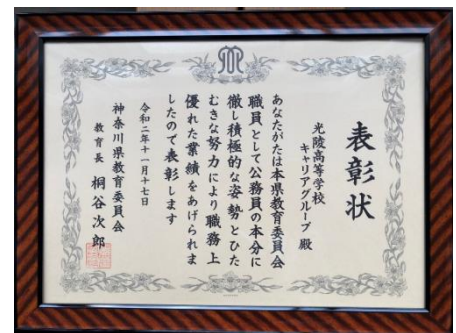 表彰状
光陵高等学校
キャリアグループ 殿
あなたがたは本県教育委員会
職員として公務員の本分に
徹し積極的な姿勢とひた
むきな努力により職務上
優れた業績をあげられま
したので表彰します
令和二年十一月十七日
神奈川県教育委員会
教育長 桐谷次郎